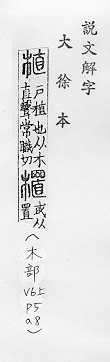 說文解字
大徐本
植 戶植也从木
直聲常職切 櫃 或从
置
(木部
V6上
P5
a8)